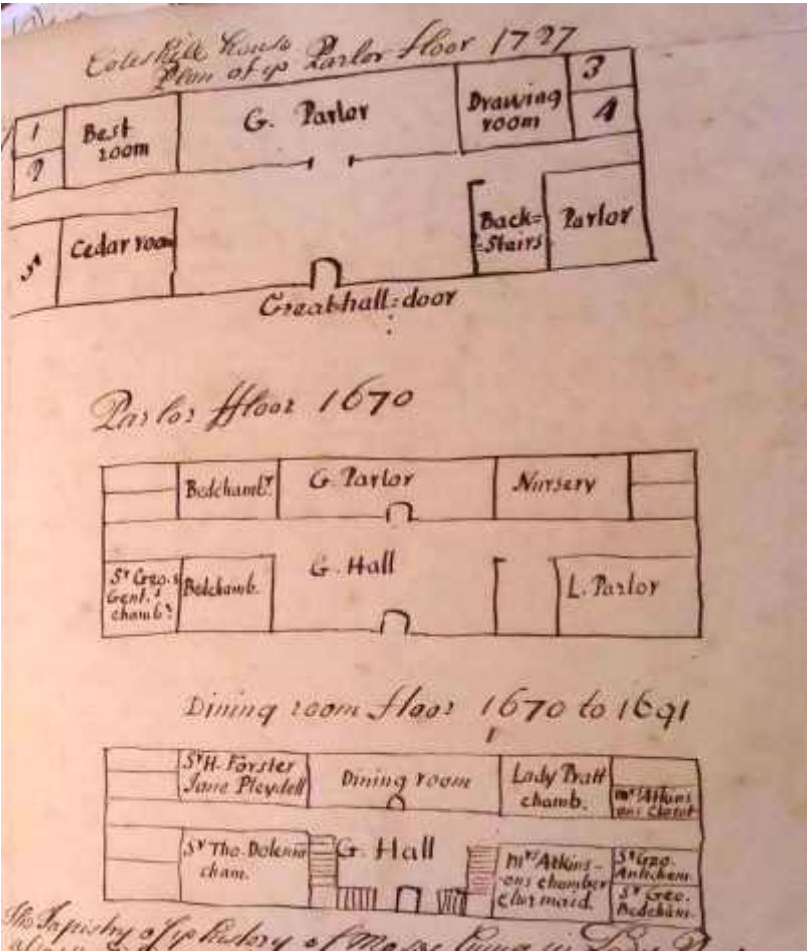 Coleshill house
Plan of ye Parlor floor 1727
1
2
Best
room
G. Parlor
Drawing
room
3
4
Cedar room
Back=
=Stairs
Parlor
Great hall: door
Parlor ffloor 1670
Bedchambr.
G. Parlor
Nursery
Sr Geo.s
Gent.s
chambr
Bedchamb.
G. Hall
L. Parlor
Dining room floor 1670 to 1691
Sr H. Forster
Jane Pleydell
Dining room
Lady Pratt
chamb.
mrs Atkins
ons Closet
Sr Tho. Dolman
cham.
G. Hall
mrs Atkins-
ons chamber
& her maid.
Sr Geo.
Anticham.
Sr Geo.
Bedcham.
The Tapistry of ye history of Moses